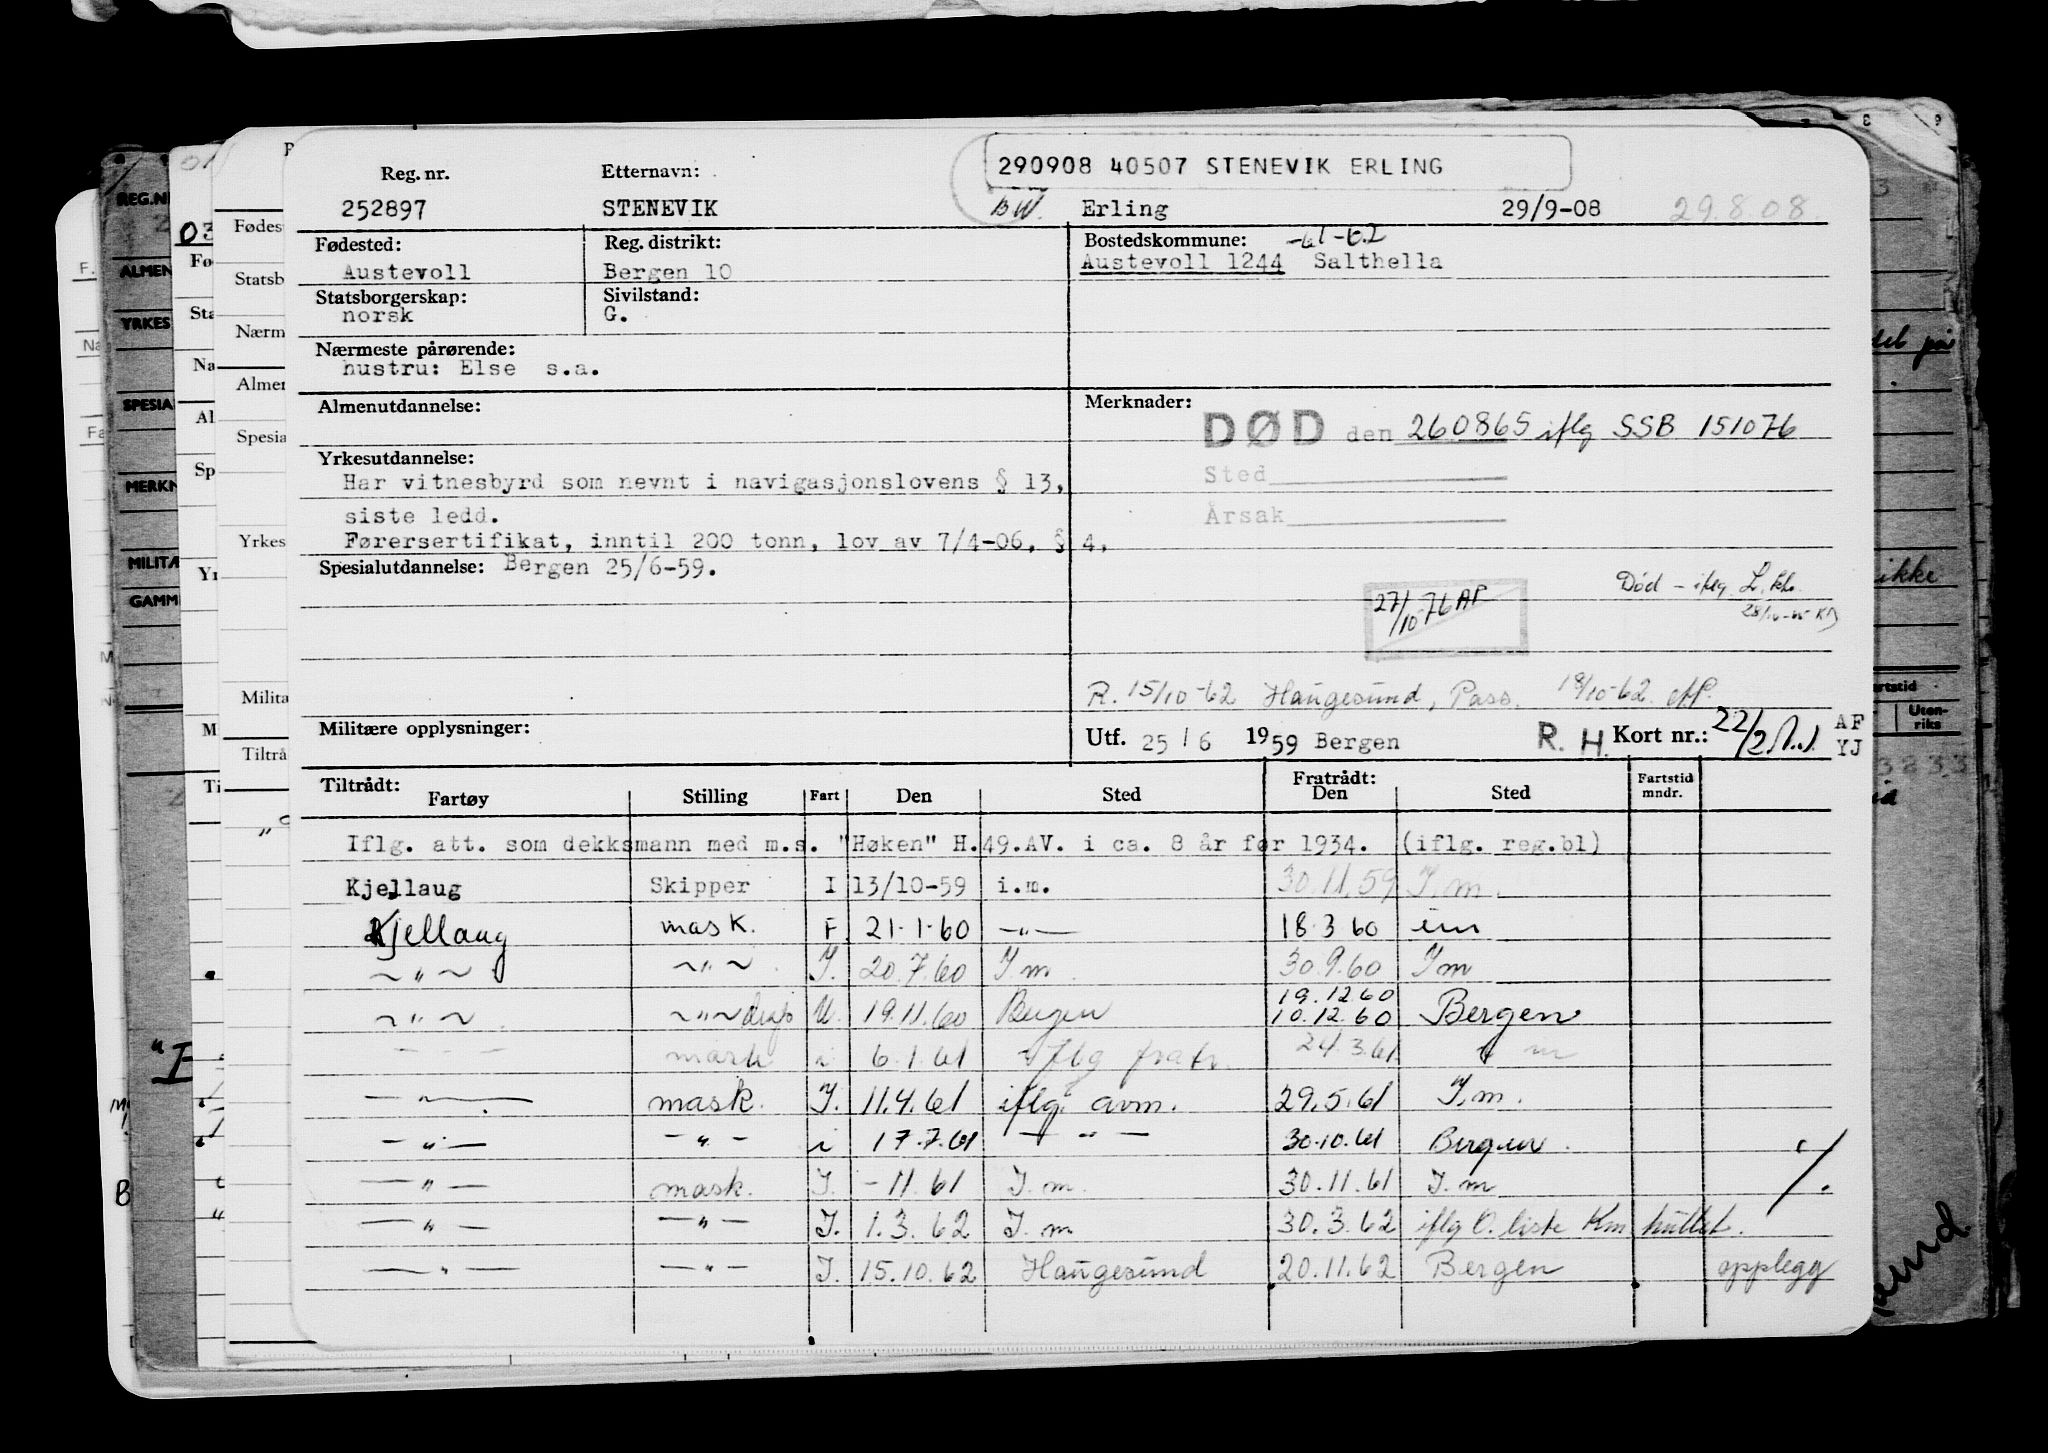 290908 40507 STENEVIK ERLING
Reg. nr. Etternavn:
252897 STENEVIK BW. Erling 29/9-08 29.8.08
Fødested: Reg. distrikt: Bostedskommune: -61-62
Austevoll Bergen 10 Austevoll 1244 Salthella
Statsborgerskap: Sivilstand:
norsk G.
Nærmeste pårørende:
hustru: Else s.a.
Almenutdannelse: Merknader:
DØD den 260865 iflg SSB 151076
Yrkesutdannelse:
Har vitnesbyrd som nevnt i navigasjonslovens § 13, Sted
siste ledd. Årsak
Førersertifikat, inntil 200 tonn, lov av 7/4-06, § 4,
Spesialutdannelse: Bergen 25/6-59.
Død - iflg L.kl.
27/10-76 AP
28/10-65 KD
R. 15/10-62 Haugesund, Pass. 18/10-62
Militære opplysninger: Utf. 25/6 1959 Bergen R. H. Kort nr.: 22/2 AF
YJ
Tiltrådt: Fratrådt: Fartstid
Fartøy Stilling Fart Den Sted Den Sted mndr.
Iflg. att. som dekksmann med m.s. "Høken" H.49.AV. i ca. 8 år før 1934. (iflg. reg.bl)
Kjellaug Skipper I 13/10-59 i.m. 30.11.59 I.m.
Kjellaug mask. F. 21-1-60 —"— 18.3 60 im
~ " ~ ~ " ~ I. 20.7.60 I.m. 30.9.60 I m
19.12.60
~ " ~ ~ " ~ disp U. 19.11.60 Bergen 10.12.60 Bergen
— " — mask i 6.1.61 iflg fratr. 24.3.61 i m
— " — mask. I. 11.4.61 iflg. avm. 29.5.61 I.m.
— " — — " — i 17.7.61 — " — 30.10.61 Bergen.
— " — mask. I. -11.61 I.m. 30.11.61 I.m
— " — — " — I. 1.3.62 I.m. 30.3.62 iflg O. liste Km huttet.
— " — — " — I. 15.10.62 Haugesund 20.11.62 Bergen opplegg